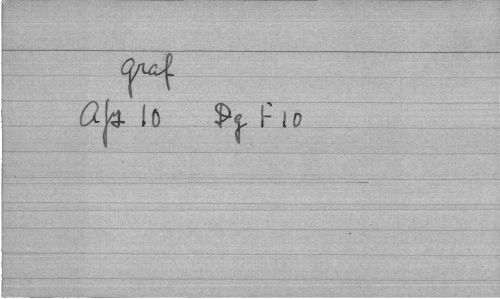 graf
Afs 10 Dg F 10